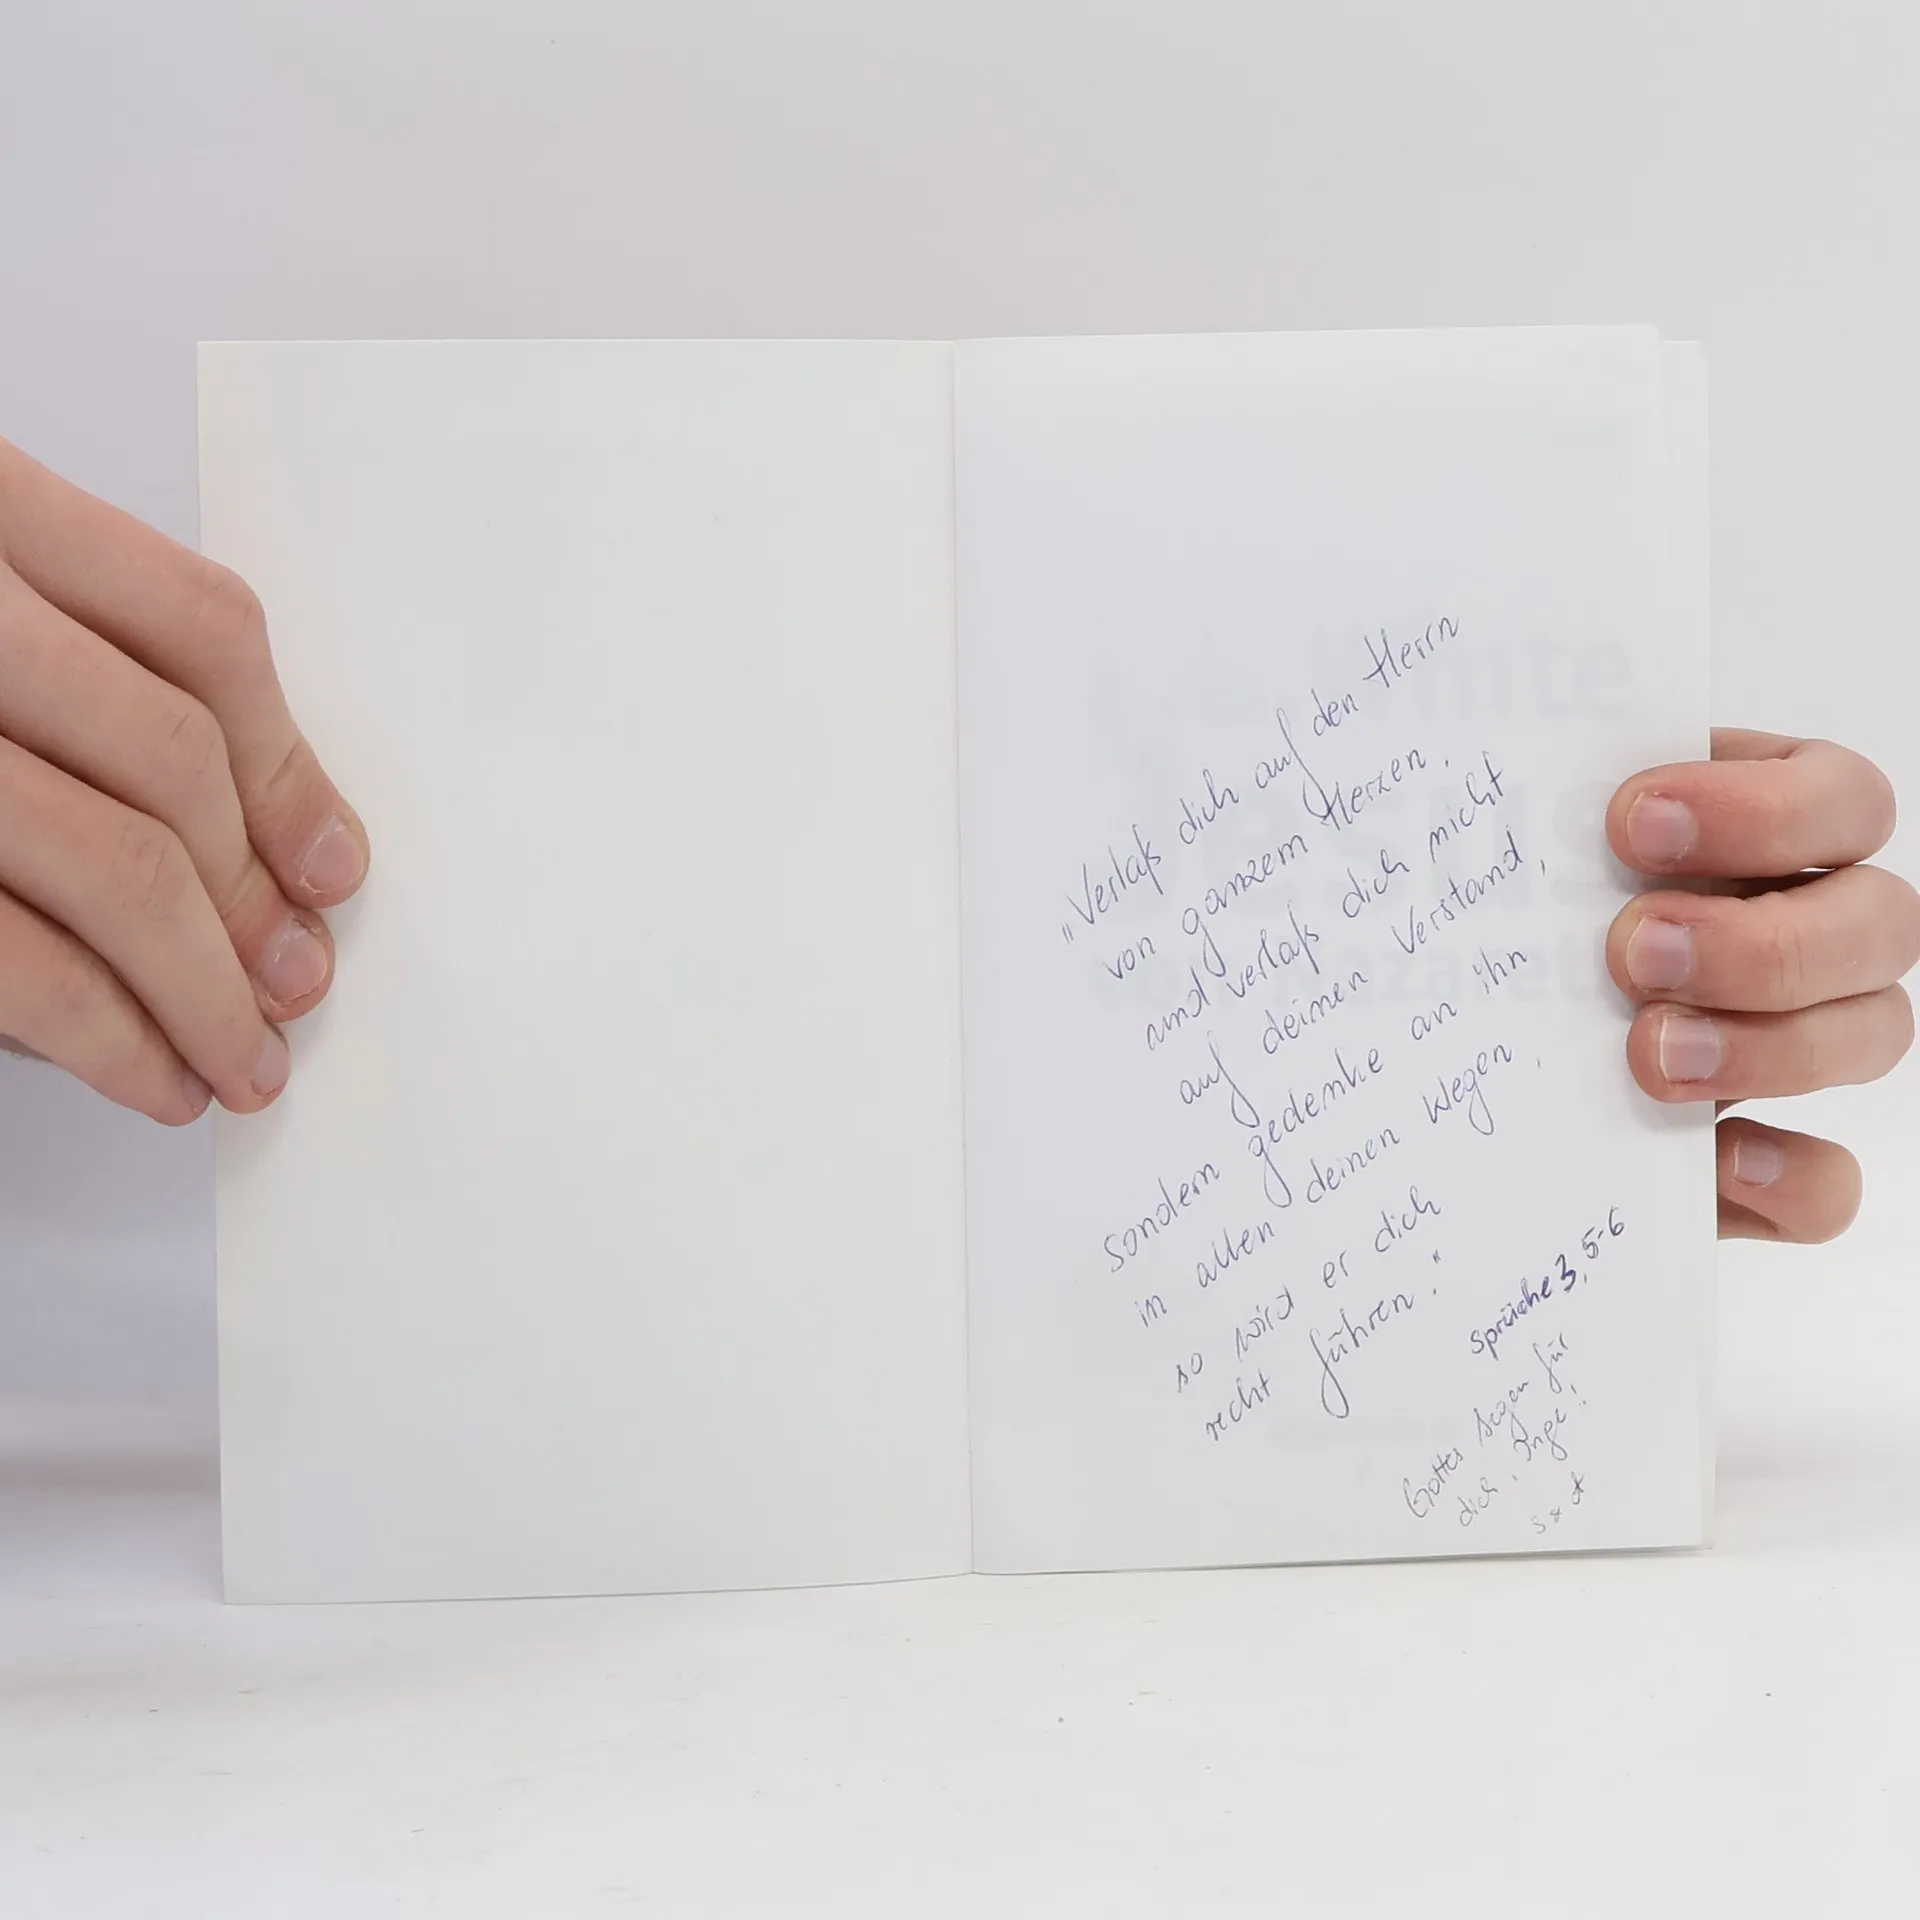 „Verlaß dich auf den Herrn
von ganzem Herzen,
und verlaß dich nicht
auf deinen Verstand,
sondern gedenke an ihn
in allen deinen Wegen,
so wird er dich
recht führen."
Sprüche 3, 5-6
Gottes Segen für
dich, Inge!